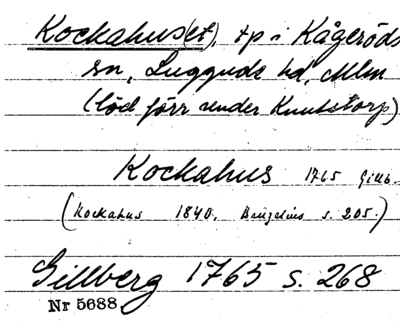 Kockahus(et), tp i Kågeröds
sn, Luggude hd, Mlm
(löd förr under Knutstorp)
Kockahus 1765 Gillb.
(Kockahus 1840. Bruzelius s. 205.)
Gillberg 1765 s. 268
Nr 5688